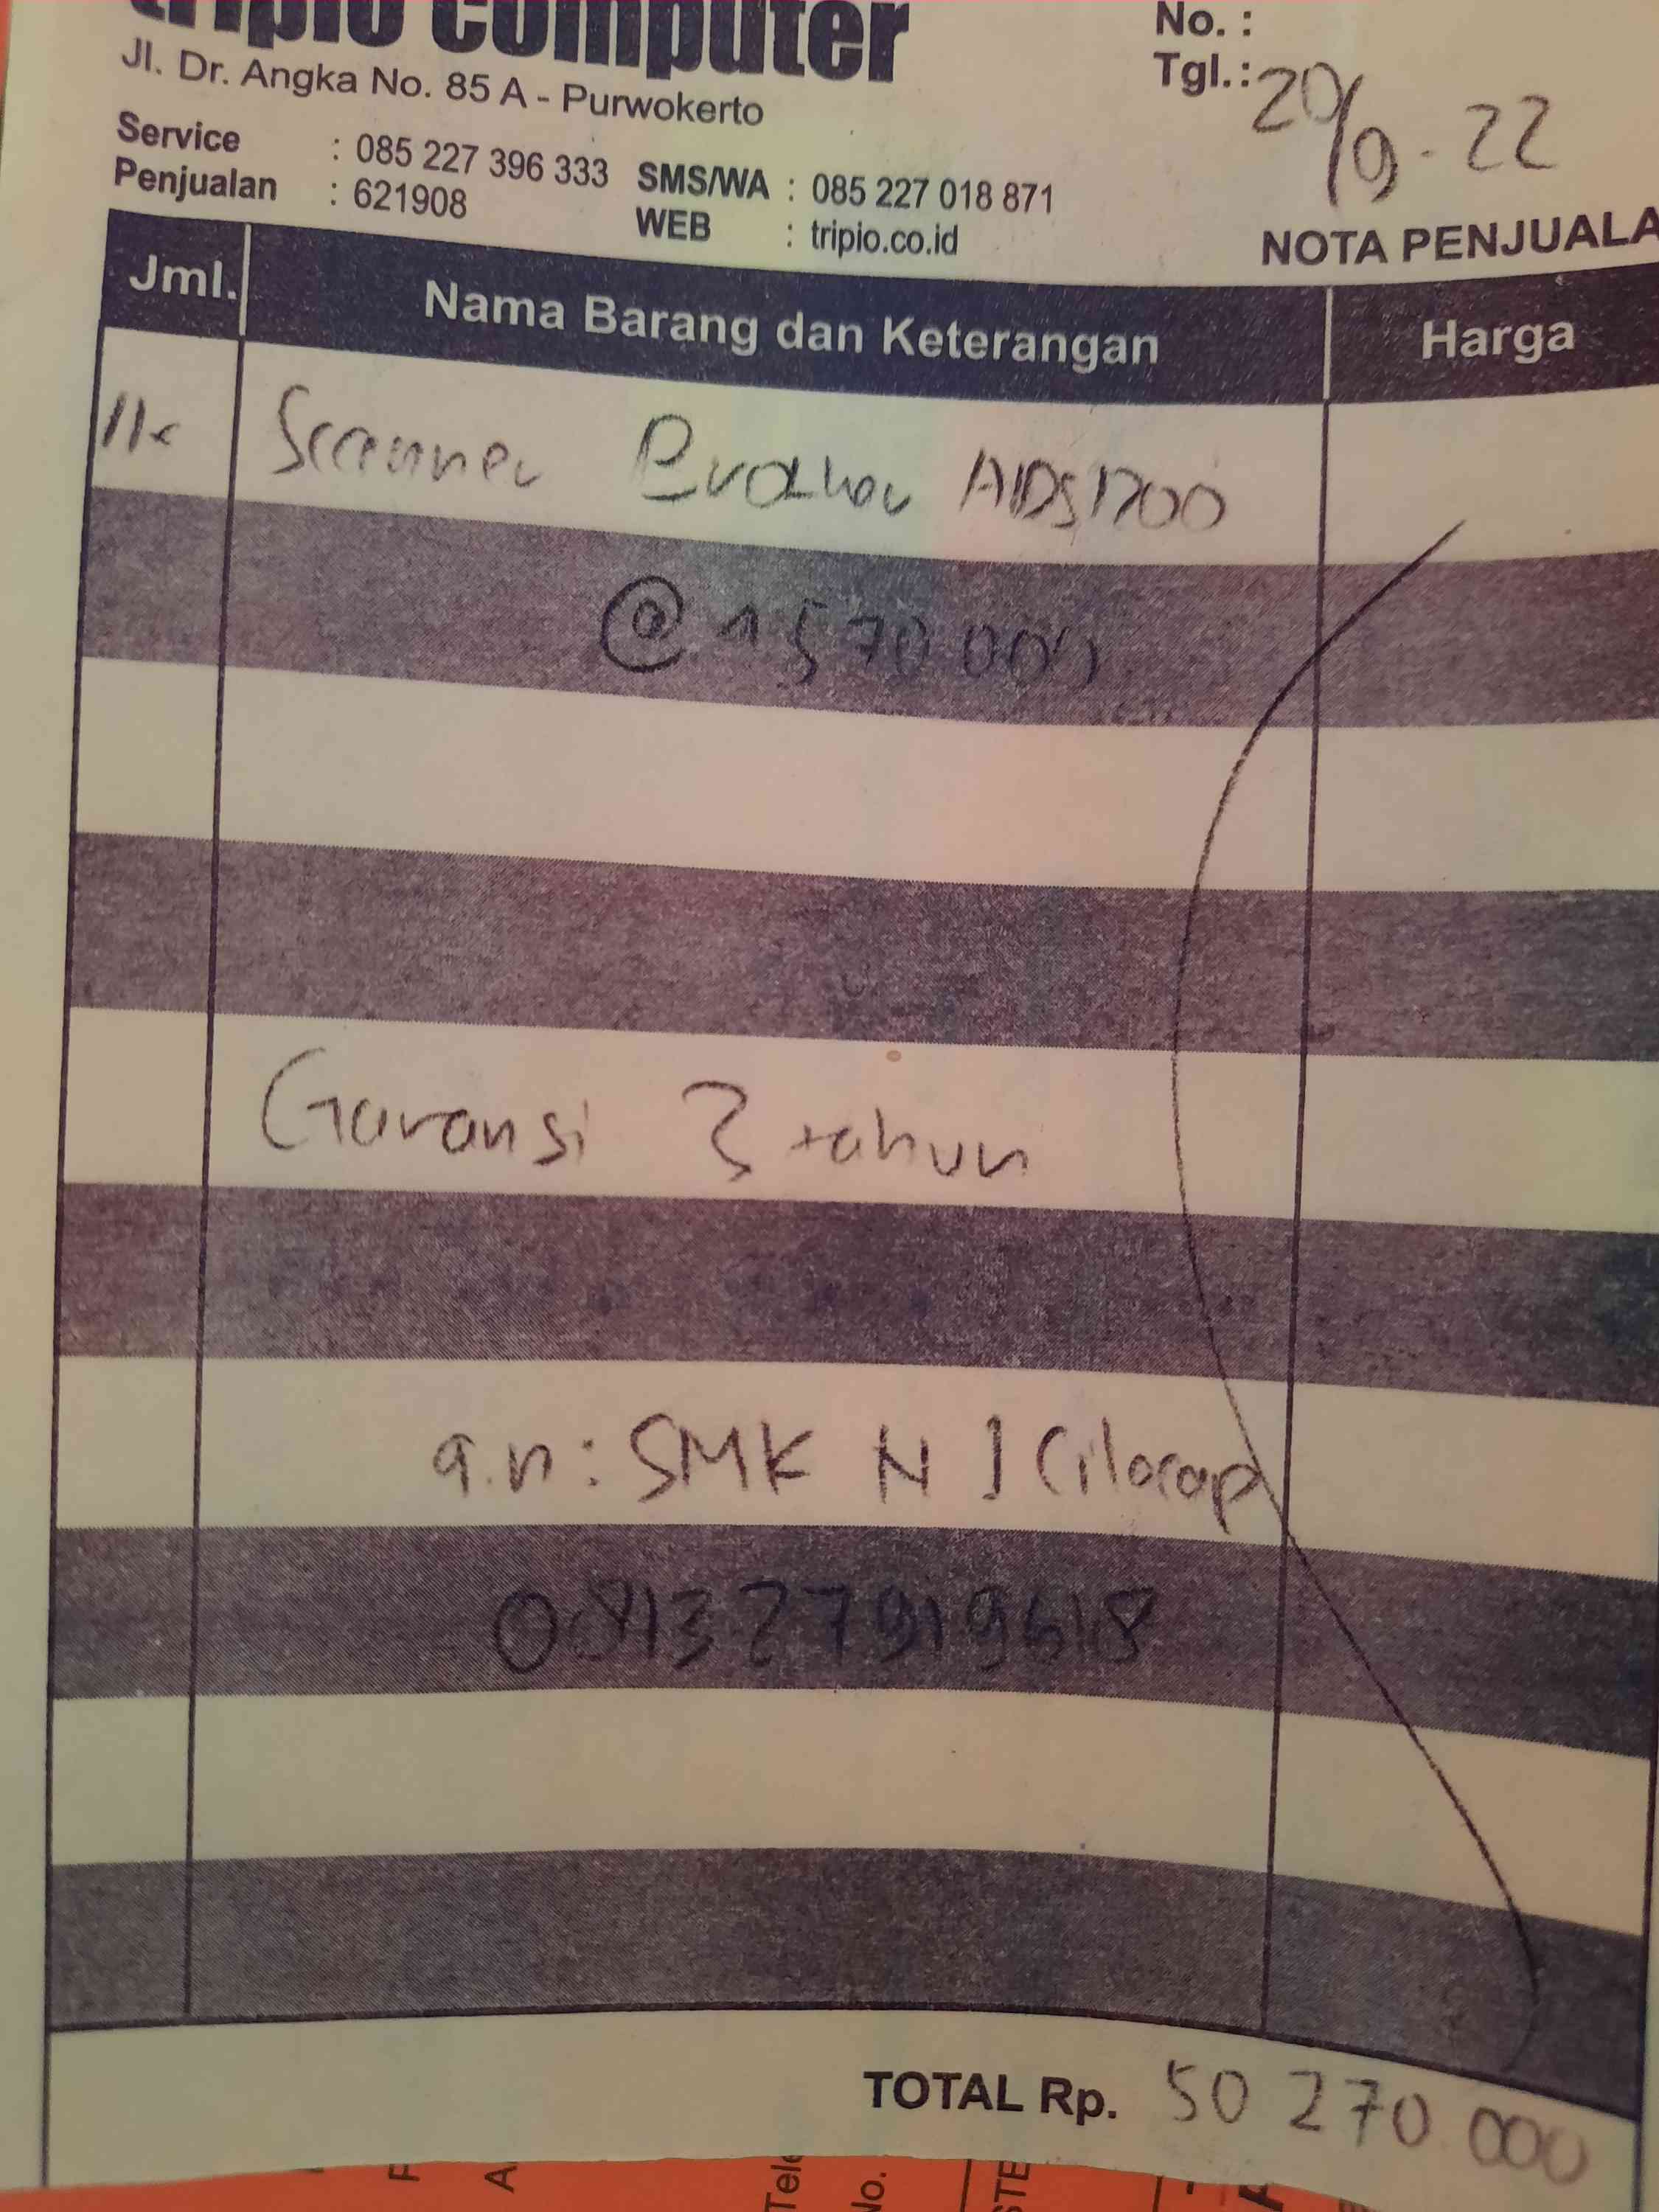 tripio computer
Jl. Dr. Angka No. 85 A - Purwokerto
Service : 085 227 396 333 SMS/WA : 085 227 018 871
Penjualan : 621908 WEB : tripio.co.id
No. :
Tgl. : 20/9 - 22
NOTA PENJUALA
Jml. Nama Barang dan Keterangan Harga
Scanner Brother ADS1700
@ 1570 000
Garansi 3 tahun
a.n : SMK N 1 Cilacap
081327919618
TOTAL Rp. 50 270 000
Tele
No.
STE